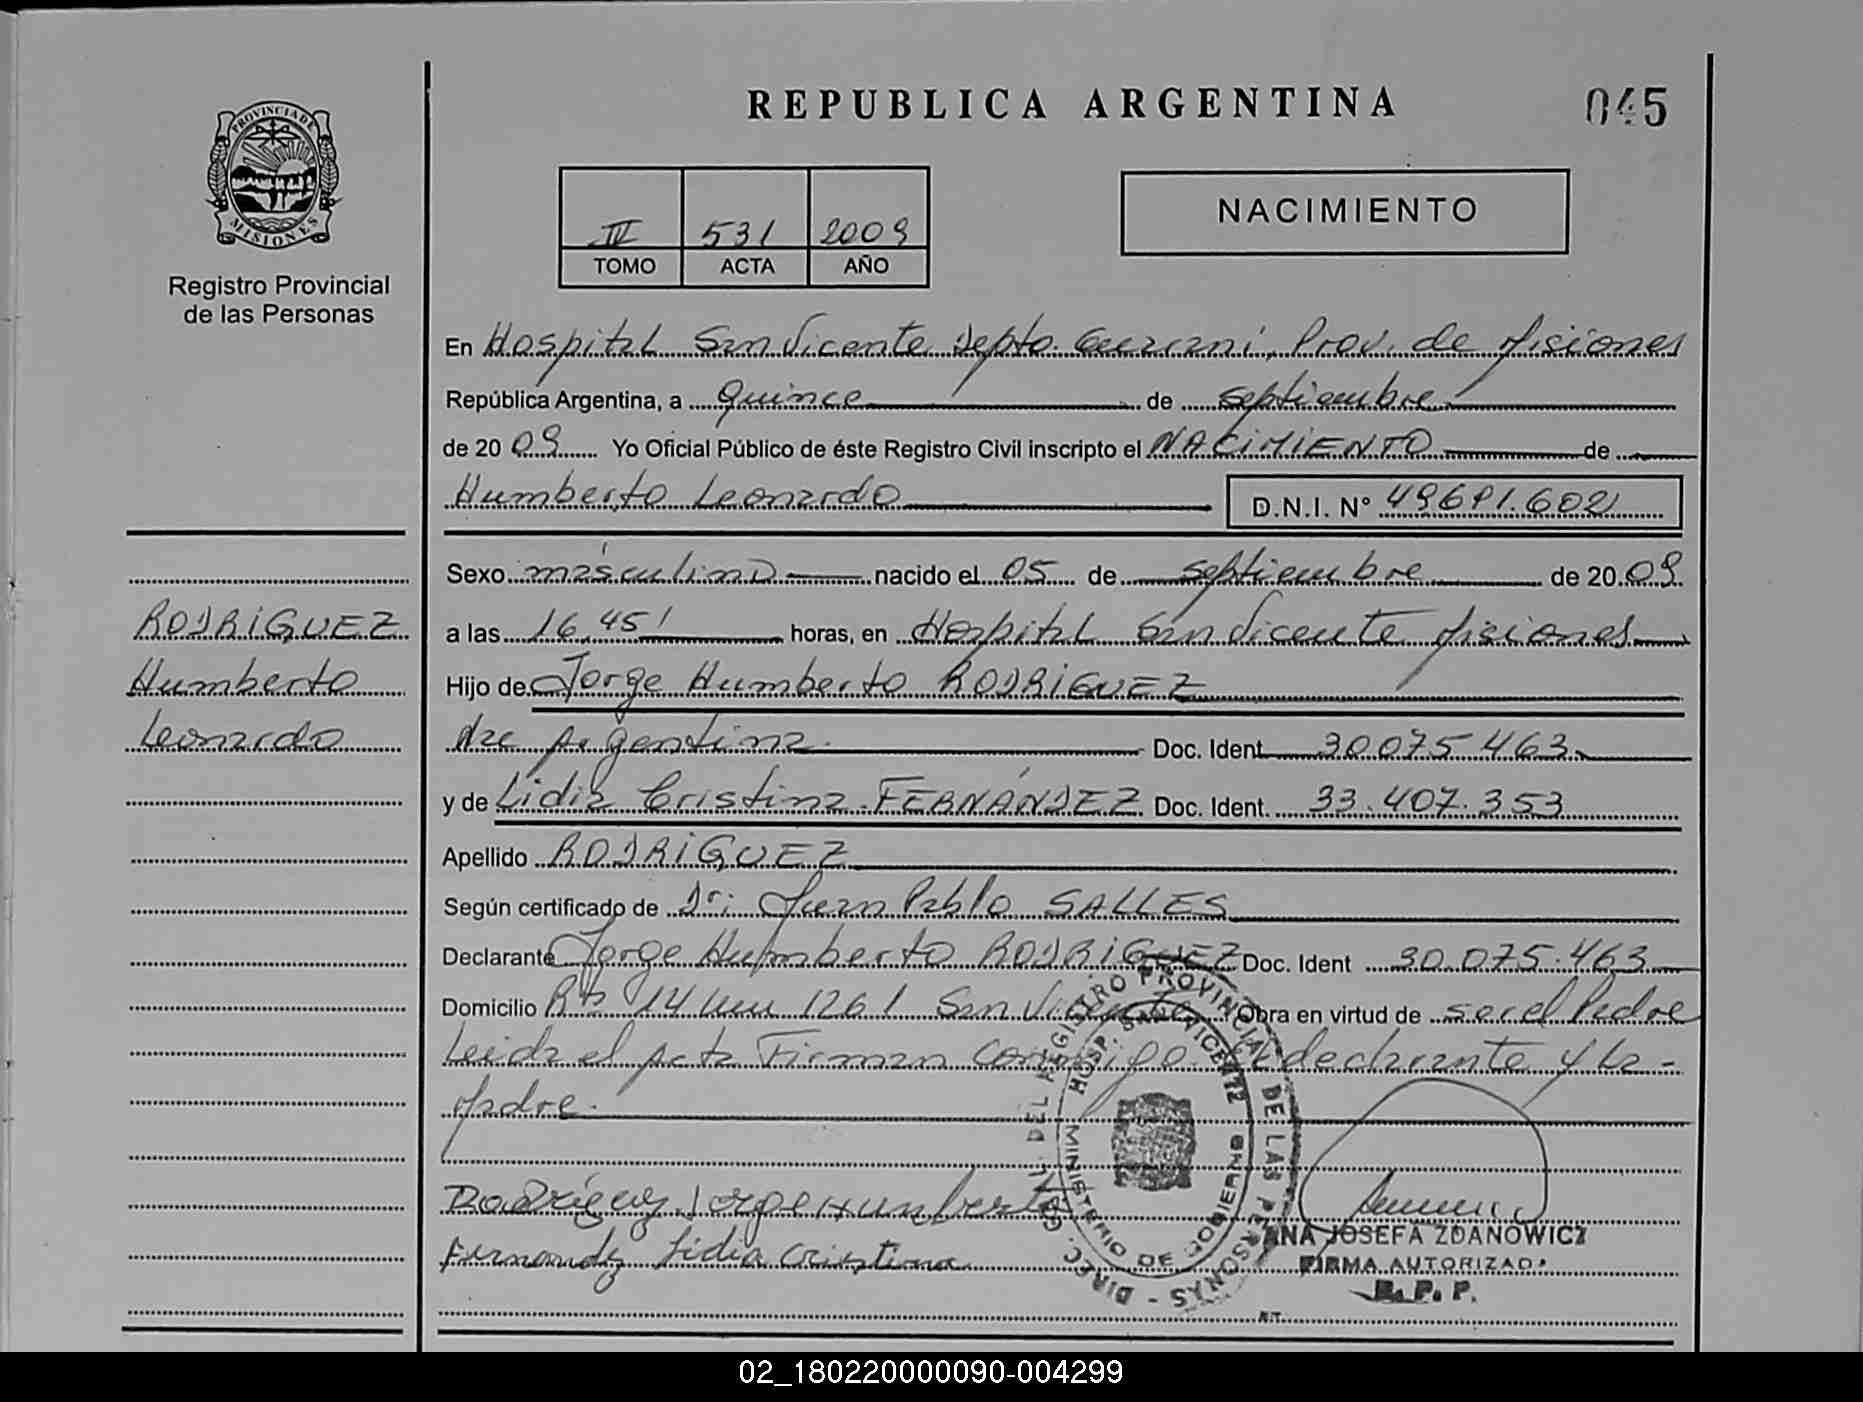 REPUBLICA ARGENTINA
045
PROVINCIA DE MISIONES
Registro Provincial
de las Personas
IV 531 2009
TOMO ACTA AÑO
NACIMIENTO
En Hospital San Vicente Depto. Guaraní, Prov. de Misiones
República Argentina, a Quince de septiembre
de 20 09 Yo Oficial Público de éste Registro Civil inscripto el NACIMIENTO de
Humberto Leonardo
D.N.I. N° 49691.602
Sexo masculino nacido el 05 de septiembre de 20 09
a las 16,45 horas, en Hospital San Vicente Misiones
Hijo de Jorge Humberto RODRIGUEZ
Nac Argentina. Doc. Ident 30.075.463
y de Lidia Cristina FERNÁNDEZ Doc. Ident. 33.407.353
Apellido RODRIGUEZ
Según certificado de Dr: Juan Pablo SALLES
Declarante Jorge Humberto RODRIGUEZ Doc. Ident 30.075.463
Domicilio Rta 14 km 1261 San Vicente Obra en virtud de ser el Padre
Leida el Acta Firman conmigo declarante y la -
Madre.
Rodriguez Jorge Humberto
Fernandez Lidia Cristina
RODRIGUEZ
Humberto
Leonardo
DIREC. GRAL. DEL REGISTRO PROVINCIAL DE LAS PERSONAS -
HOSP. SAN VICENTE
MINISTERIO DE GOBIERNO
ANA JOSEFA ZDANOWICZ
FIRMA AUTORIZADA
R. P. P.
02_180220000090-004299